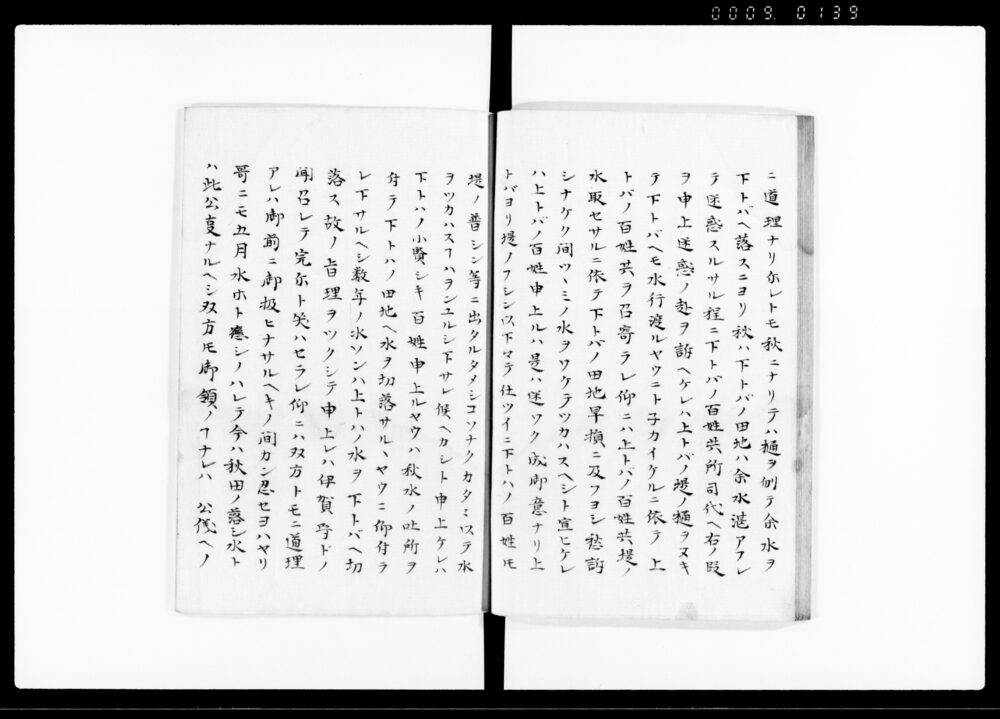 0009. 0139
ニ道理ナリ尓レトモ秋ニナリテハ樋ヲ刎テ余水ヲ
下トバヘ落スニヨリ秋ハ下トバノ田地ハ余水湛アフレ
テ迷惑スルサル程ニ下トバノ百姓共所司代ヘ右ノ段
ヲ申上迷惑ノ赴ヲ訴ヘケレハ上トバノ堤ノ樋ヲヌキ
テ下トバヘモ水行渡ルヤウニト子カイケルニ依テ上
トバノ百姓共ヲ召寄ラレ仰ニハ上トバノ百姓共堤ノ
水取セサルニ依テ下トバノ田地旱損ニ及フヨシ愁訴
シナケク間ツヽミノ水ヲワケテツカハスヘシト宣ヒケレ
ハ上トバノ百姓申上ルハ是ハ迷ワク成御意ナリ上
トバヨリ堤ノフシン以下マテ仕ツイニ下トハノ百姓モ
堤ノ普シン等ニ出タルタメシコソナクカタミ以テ水
ヲツカハスヿハヲンユルシ下サレ候ヘカシト申上ケレハ
下トハノ小賢シキ百姓申上ルヤウハ秋水ノ吐所ヲ
付テ下トハノ田地ヘ水ヲ切落サルヽヤウニ仰付ラ
レ下サルヘシ数年ノ水ソンハ上トハノ水ヲ下トバヘ切
落ス故ノ旨理ヲツクシテ申上レハ伊賀守ドノ
聞召レテ完尓ト笑ハセラレ仰ニハ双方トモニ道理
アレハ御前ニ御扱ヒナサルヘキノ間カン忍セヨハヤリ
哥ニモ五月水ホト恋シノハレテ今ハ秋田ノ落シ水ト
ハ此公事ナルヘシ双方モ御領ノヿナレハ 公儀ヘノ